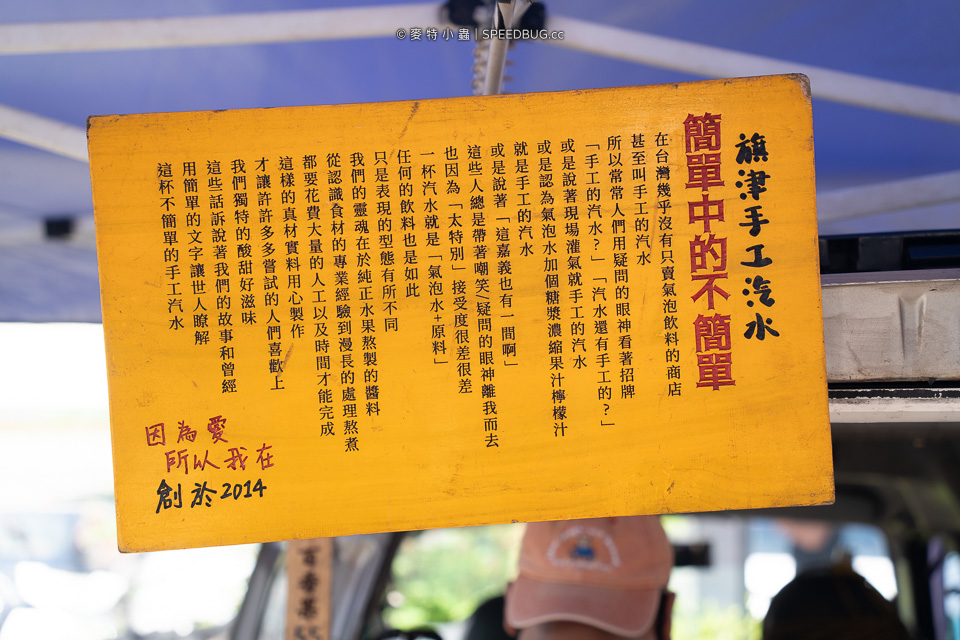 © 麥特小蟲 | SPEEDBUG.cc
旗津手工汽水
簡單中的不簡單
在台灣幾乎沒有只賣氣泡飲料的商店
甚至叫手工的汽水
所以常常人們用疑問的眼神看著招牌
「手工的汽水?」「汽水還有手工的?」
或是說著現場灌氣就手工的汽水
或是認為氣泡水加個糖漿濃縮果汁檸檬汁
就是手工的汽水
或是說著「這嘉義也有一間啊」
這些人總是帶著嘲笑/疑問的眼神離我而去
也因為「太特別」接受度很差很差
一杯汽水就是「氣泡水+原料」
任何的飲料也是如此
只是表現的型態有所不同
我們的靈魂在於純正水果熬製的醬料
從認識食材的專業經驗到漫長的處理熬煮
都要花費大量的人工以及時間才能完成
這樣的真材實料用心製作
才讓許許多多嘗試的人們喜歡上
我們獨特的酸甜好滋味
這些話訴說著我們的故事和曾經
用簡單的文字讓世人瞭解
這杯不簡單的手工汽水
因為愛
所以我在
創於2014